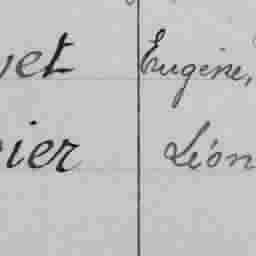 vet Eugène,
ier Léon